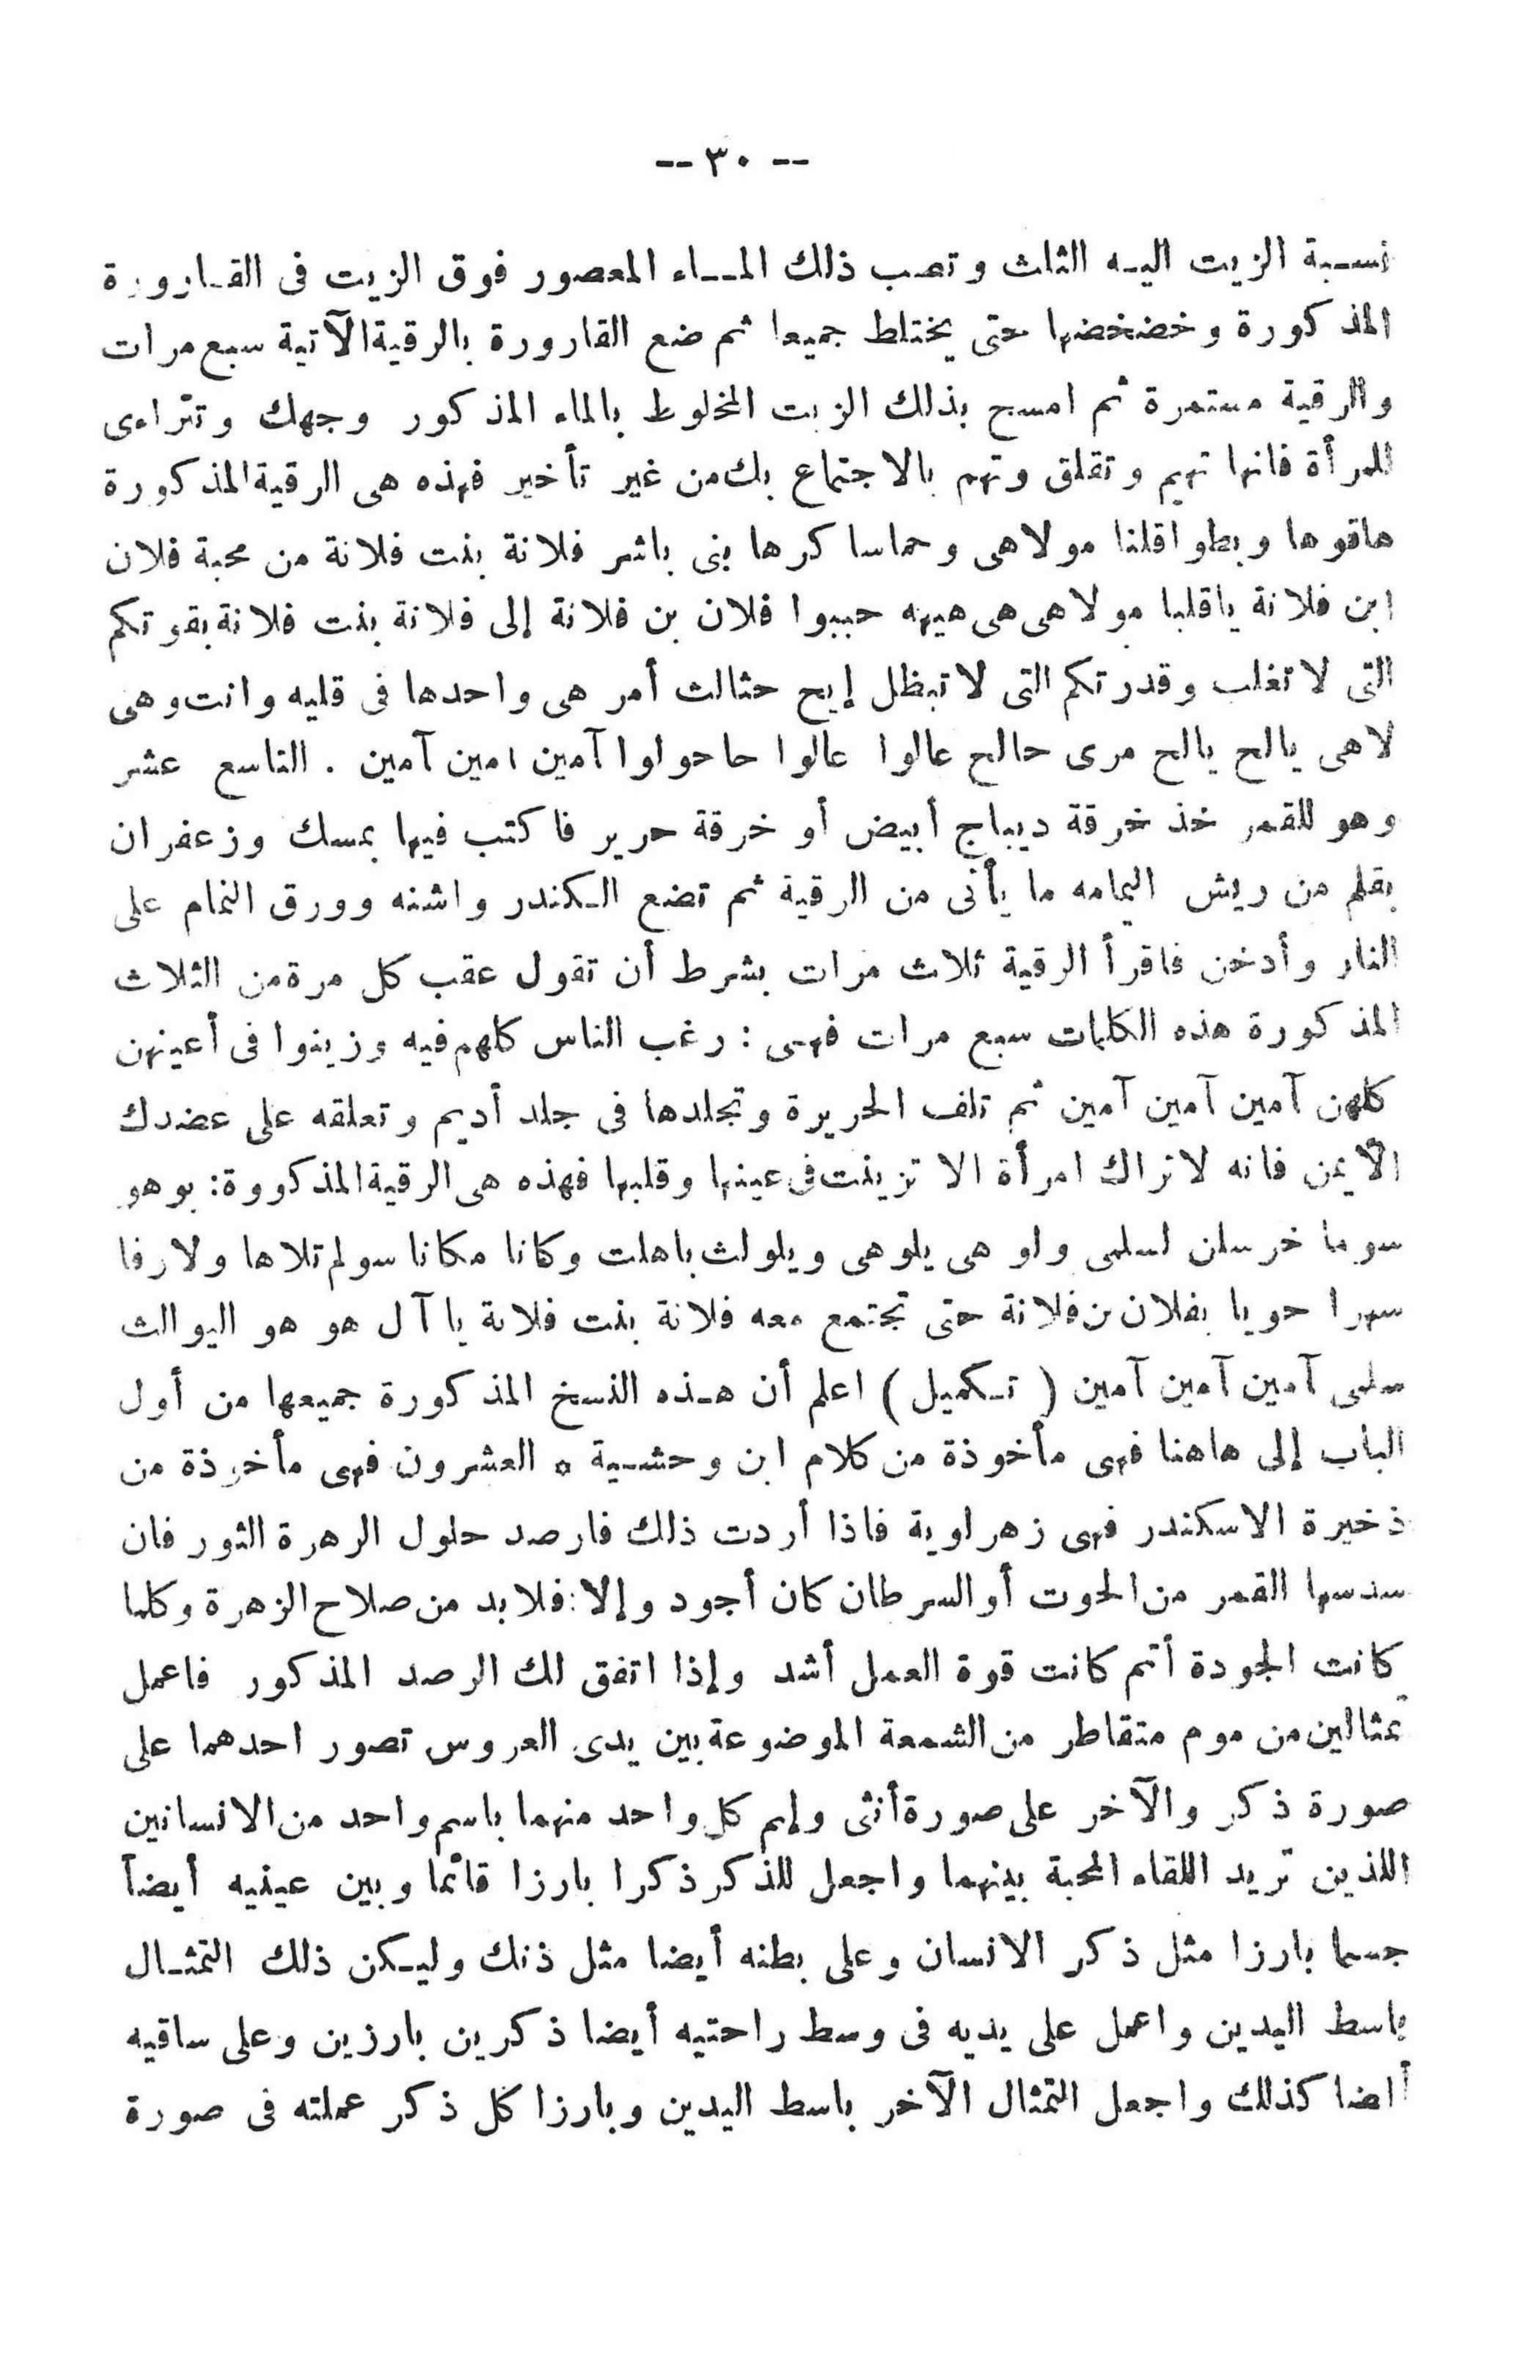 -- ٣٠ --
نسبة الزيت اليه الثلث وتصب ذلك الماء المعصور فوق الزيت فى القارورة
المذكورة وخضخضها حتى يختلط جميعا ثم ضع القارورة بالرقية الآتية سبع مرات
والرقية مستمرة ثم امسح بذلك الزيت المخلوط بالماء المذكور وجهك وتتراءى
للمرأة فانها تهيم وتقلق وتهم بالاجتماع بك من غير تأخير فهذه هى الرقية المذكورة
هاقوها وبطوا قلنا مولاهى وحماسا كرها بنى باشر فلانة بنت فلانة من محبة فلان
ابن فلانة ياقلبا مولاهى هى هيهه حببوا فلان بن فلانة إلى فلانة بنت فلانة بقوتكم
التى لا تغلب وقدرتكم التى لا تبظل إيح حثالث أمر هى واحدها فى قليه وانت وهى
لاهى يالح يالح مرى حالح عالوا عالوا حاحولوا آمين امين آمين . التاسع عشر
وهو للقمر خذ خرقة ديباج أبيض أو خرقة حرير فاكتب فيها بمسك وزعفران
بقلم من ريش اليمامه ما يأتى من الرقية ثم تضع الكندر واشنه وورق النمام على
النار وأدخن فاقرأ الرقية ثلاث مرات بشرط أن تقول عقب كل مرة من الثلاث
المذكورة هذه الكلمات سبع مرات فهى : رغب الناس كلهم فيه وزينوا فى أعينهن
كلهن آمين آمين آمين ثم تلف الحريرة وتجلدها فى جلد أديم وتعلقه على عضدك
الأيمن فانه لا تراك امرأة الا تزينت فى عينها وقلبها فهذه هى الرقية المذكووة: بوهو
سوما خرسلن لسلمى ولو هى يلوهى ويلولث باهلت وكانا مكانا سولم تلاها ولارفا
سهرا حويا بفلان بن فلانة حتى تجتمع معه فلانة بنت فلانة يا آل هو هو اليوالث
سلمى آمين آمين آمين ( تكميل ) اعلم أن هذه النسخ المذكورة جميعها من أول
الباب إلى هاهنا فهى مأخوذة من كلام ابن وحشية ٥ العشرون فهى مأخوذة من
ذخيرة الاسكندر فهى زهراوية فاذا أردت ذلك فارصد حلول الرهرة الثور فان
سدسها القمر من الحوت أو السرطان كان أجود وإلا فلابد من صلاح الزهرة وكلما
كانت الجودة أتم كانت قوة العمل أشد وإذا اتفق لك الرصد المذكور فاعمل
تمثالين من موم متقاطر من الشمعة الموضوعة بين يدى العروس تصور احدهما على
صورة ذكر والآخر على صورة أنثى وإسم كل واحد منهما باسم واحد من الانسانين
اللذين تريد اللقاء المحبة بينهما واجعل للذكر ذكرا بارزا قائما وبين عينيه أيضاً
جسما بارزا مثل ذكر الانسان وعلى بطنه أيضا مثل ذنك وليكن ذلك التمثال
باسط اليدين واعمل على يديه فى وسط راحتيه أيضا ذكرين بارزين وعلى ساقيه
أيضا كذلك واجعل التمثال الآخر باسط اليدين وبارزا كل ذكر عملته فى صورة